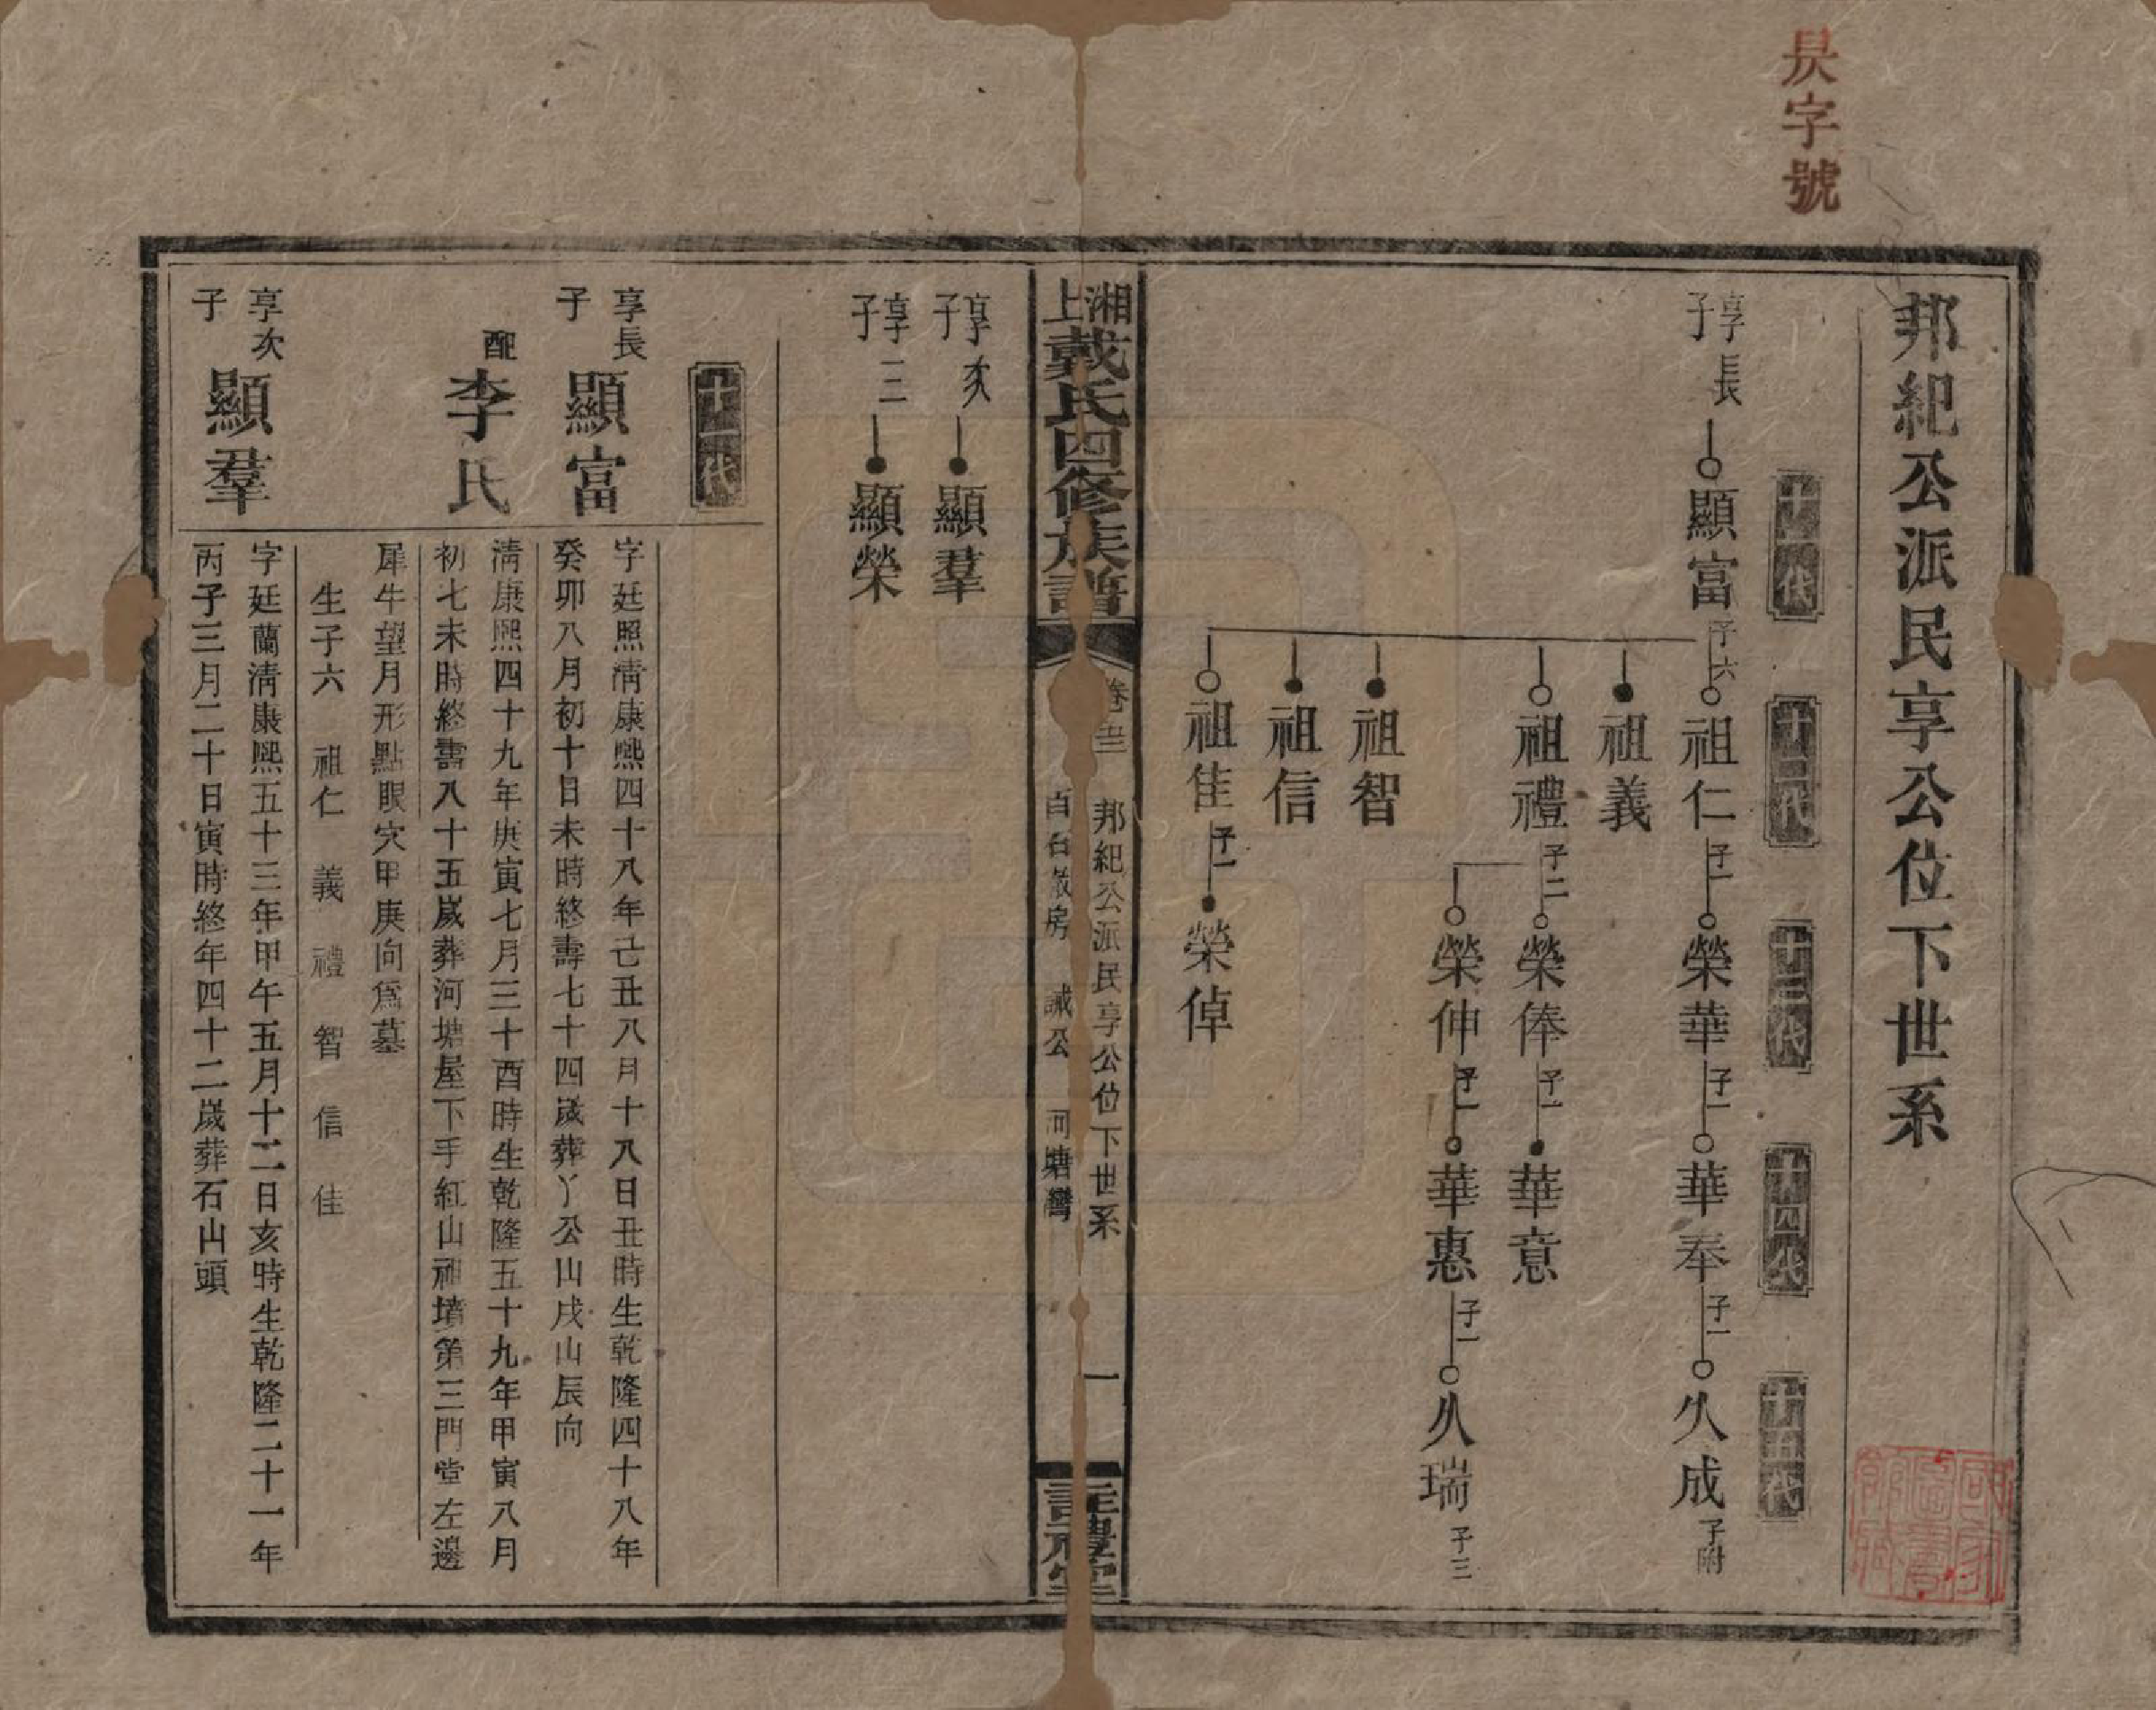 昃字號
邦紀公派民享公位下世系
十一代
十二代
十三代
十四代
十五代
享長子
顯富 子六
祖仁 子一
榮華 子一
華奉 子一
久成 子附
祖義
祖禮 子二
榮俸 子一
華意
榮伸 子一
華惠 子一
久瑞 子三
祖智
祖信
祖佳 子一
榮倬
湘上戴氏四修族譜
邦紀公派民享公位下世系
誠公
河塘灣
一
註禮堂
享次子
顯羣
享三子
顯榮
十一代
享長子
顯富
字廷照淸康熙四十八年己丑八月十八日丑時生乾隆四十八年
癸卯八月初十日未時終壽七十四歲葬丫公山戌山辰向
配
李氏
淸康熙四十九年庚寅七月三十酉時生乾隆五十九年甲寅八月
初七未時終壽八十五歲葬河塘屋下手紅山祖墳第三門堂左邊
犀牛望月形點眼穴甲庚向爲墓
生子六 祖仁 義 禮 智 信 佳
享次子
顯羣
字廷蘭淸康熙五十三年甲午五月十二日亥時生乾隆二十一年
丙子三月二十日寅時終年四十二歲葬石山頭